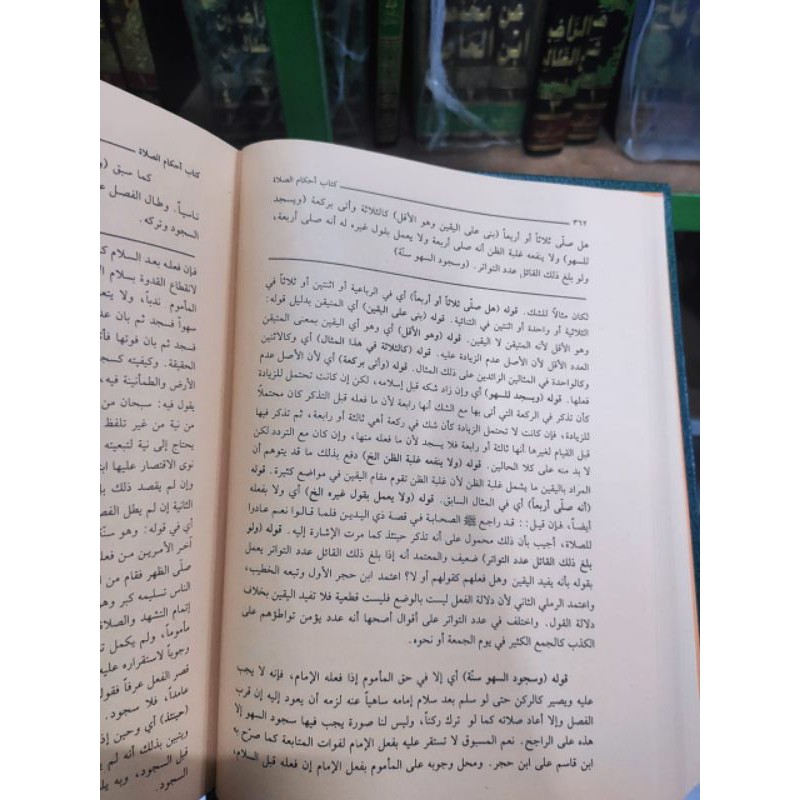 كتاب أحكام الصلاة
٣٦٢
هل صلّى ثلاثاً أو أربعاً (بنى على اليقين وهو الأقل) كالثلاثة وأتى بركعة (ويسجد
للسهو) ولا ينفعه غلبة الظن أنه صلى أربعة ولا يعمل بقول غيره له أنه صلى أربعة،
ولو بلغ ذلك القائل عدد التواتر. (وسجود السهو سنّة)
لكان مثالاً للشك. قوله (هل صلّى ثلاثاً أو أربعاً) أي في الرباعية أو اثنتين أو ثلاثاً في
الثلاثية أو واحدة أو اثنتين في الثنائية. قوله (بنى على اليقين) أي المتيقن بدليل قوله:
وهو الأقل لأنه المتيقن لا اليقين. قوله (وهو الأقل) أي وهو أي اليقين بمعنى المتيقن
العدد الأقل لأن الأصل عدم الزيادة عليه. قوله (كالثلاثة في هذا المثال) أي وكالاثنتين
وكالواحدة في المثالين الزائدين على ذلك المثال. قوله (وأتى بركعة) أي لأن الأصل عدم
فعلها. قوله (ويسجد للسهو) أي وإن زاد شكه قبل إسلامه، لكن إن كانت تحتمل للزيادة
كأن تذكر في الركعة التي أتى بها مع الشك أنها رابعة لأن ما فعله قبل التذكر كان محتملاً
للزيادة، فإن كانت لا تحتمل الزيادة كأن شك في ركعة أهي ثالثة أو رابعة، ثم تذكر فيها
قبل القيام لغيرها أنها ثالثة أو رابعة فلا يسجد لأن ما فعله منها، وإن كان مع التردد لكن
لا بد منه على كلا الحالين. قوله (ولا ينفعه غلبة الظن الخ) دفع بذلك ما قد يتوهم أن
المراد باليقين ما يشمل غلبة الظن لأن غلبة الظن تقوم مقام اليقين في مواضع كثيرة. قوله
(أنه صلّى أربعاً) أي في المثال السابق. قوله (ولا يعمل بقول غيره الخ) أي ولا بفعله
أيضاً، فإن قيل:: قد راجع ﷺ الصحابة في قصة ذي اليدين فلما قالوا نعم عادوا
للصلاة، أجيب بأن ذلك محمول على أنه تذكر حينئذ كما مرت الإشارة إليه. قوله (ولو
بلغ ذلك القائل عدد التواتر) ضعيف والمعتمد أنه إذا بلغ ذلك القائل عدد التواتر يعمل
بقوله بأنه يفيد اليقين وهل فعلهم كقولهم أو لا؟ اعتمد ابن حجر الأول وتبعه الخطيب،
واعتمد الرملي الثاني لأن دلالة الفعل ليست بالوضع فليست قطعية فلا تفيد اليقين بخلاف
دلالة القول. واختلف في عدد التواتر على أقوال أصحها أنه عدد يؤمن تواطؤهم على
الكذب كالجمع الكثير في يوم الجمعة أو نحوه.
قوله (وسجود السهو سنّة) أي إلا في حق المأموم إذا فعله الإمام، فإنه لا يجب
عليه ويصير كالركن حتى لو سلم بعد سلام إمامه ساهياً عنه لزمه أن يعود إليه إن قرب
الفصل وإلا أعاد صلاته كما لو ترك ركناً، وليس لنا صورة يجب فيها سجود السهو إلا
هذه على الراجح. نعم المسبوق لا تستقر عليه بفعل الإمام لفوات المتابعة كما صرّح به
ابن قاسم على ابن حجر. ومحل وجوبه على المأموم بفعل الإمام إن فعله قبل السلام،
كتاب أحكام الصلاة
كما سبق
ناسياً. وطال الفصل
السجود وتركه.
فإن فعله بعد السلام
لانقطاع القدوة بسلام
المأموم ندباً، ولا
سهواً فسجد ثم بان
فسجد ثم بان فوتها
الحقيقة. وكيفيته
الأرض والطمأنينة فيه،
يقول فيه: سبحان من
من نية من غير تلفظ
يحتاج إلى نية لتبعيته
نوى الاقتصار عليها
وإن لم يقصد ذلك
الثانية إن لم يطل
أي في قوله: وهو
آخر الأمرين من
صلّى الظهر فقام من
الناس تسليمه كبر
إتمام التشهد والصلاة
مأموماً، ولم يكمل
وجوباً لاستقراره عليه
قصر الفعل عرفاً
عامداً، فلا سجود.
(حينئذ) أي وحين
ويتبين بذلك أنه لم
قبل السجود، وبه
السجود.